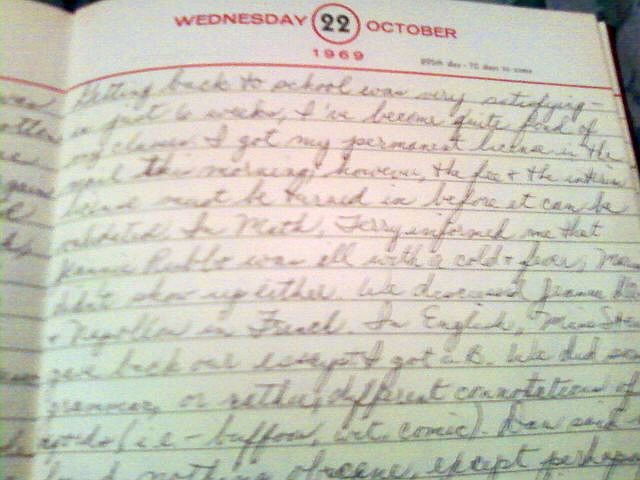 WEDNESDAY 22 OCTOBER
1969
295th day - 70 days to come
Getting back to school was very satisfying -
in just 6 weeks, I've become quite fond of
my classes. I got my permanent license in the
mail this morning, however, the fee + the interim
must be turned in before it can be
validated. In Math, Terry informed me that
was ill with a cold + fever,
didn't show up either. We discussed Jeanne
+ Napoleon in French. In English, Miss
gave back our I got a B. We did
grammar, or rather, different connotations of
words (i.e. - buffoon, wit, comic). Dan said
nothing obscene, except perhaps